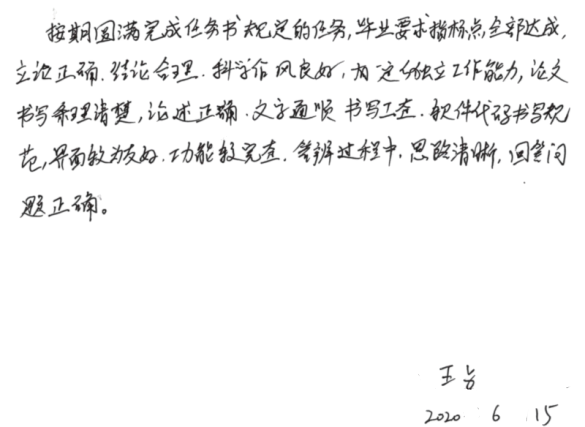 按期圆满完成任务书规定的任务,毕业要求指标点全部达成,
立论正确.结论合理.科学作风良好,有一定的独立工作能力,论文
书写条理清楚,论述正确.文字通顺 书写工整.软件代码书写规
范,界面较为友好.功能较完整.答辩过程中.思路清晰,回答问
题正确。
王
2020 6 15